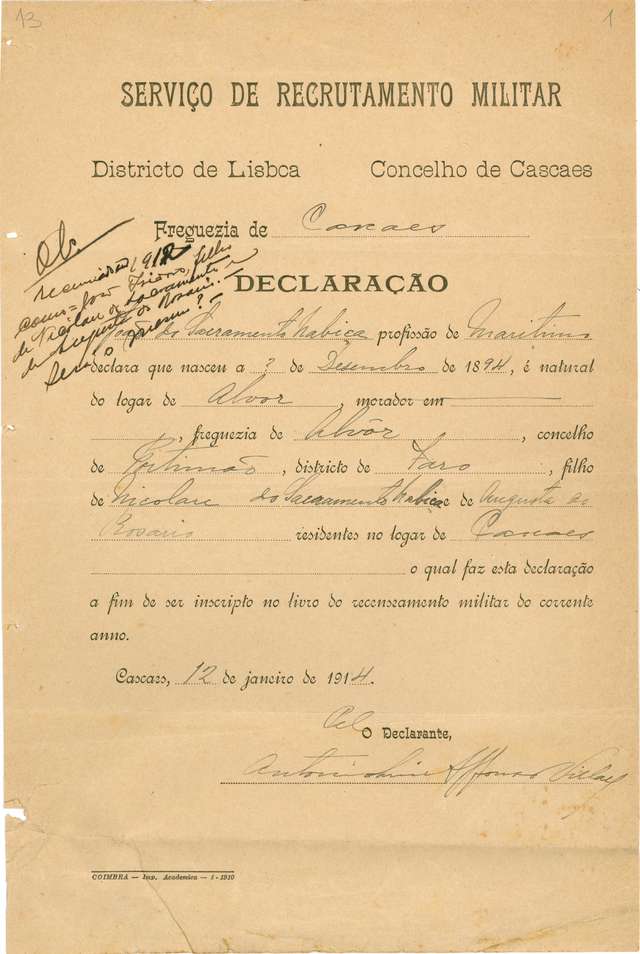 13
1
SERVIÇO DE RECRUTAMENTO MILITAR
Districto de Lisboa Concelho de Cascaes
Freguezia de Cascaes
1912
filho
de Nicolau do Sacramento e
de Augusta do Rosario.
DECLARAÇÃO
do Sacramento Nabica profissão de Maritimo
declara que nasceu a ? de Desembro de 1894, é natural
do logar de Alvor, morador em
, freguezia de Alvôr, concelho
de Portimão, districto de Faro, filho
de Nicolau do Sacramento Nabica e de Augusta do
Rosario residentes no logar de Cascaes
o qual faz esta declaração
a fim de ser inscripto no livro do recenseamento militar do corrente
anno.
Cascaes, 12 de janeiro de 1914.
Pel
O Declarante,
Affonso Villar
COIMBRA — Imp. Academica — 1-1910